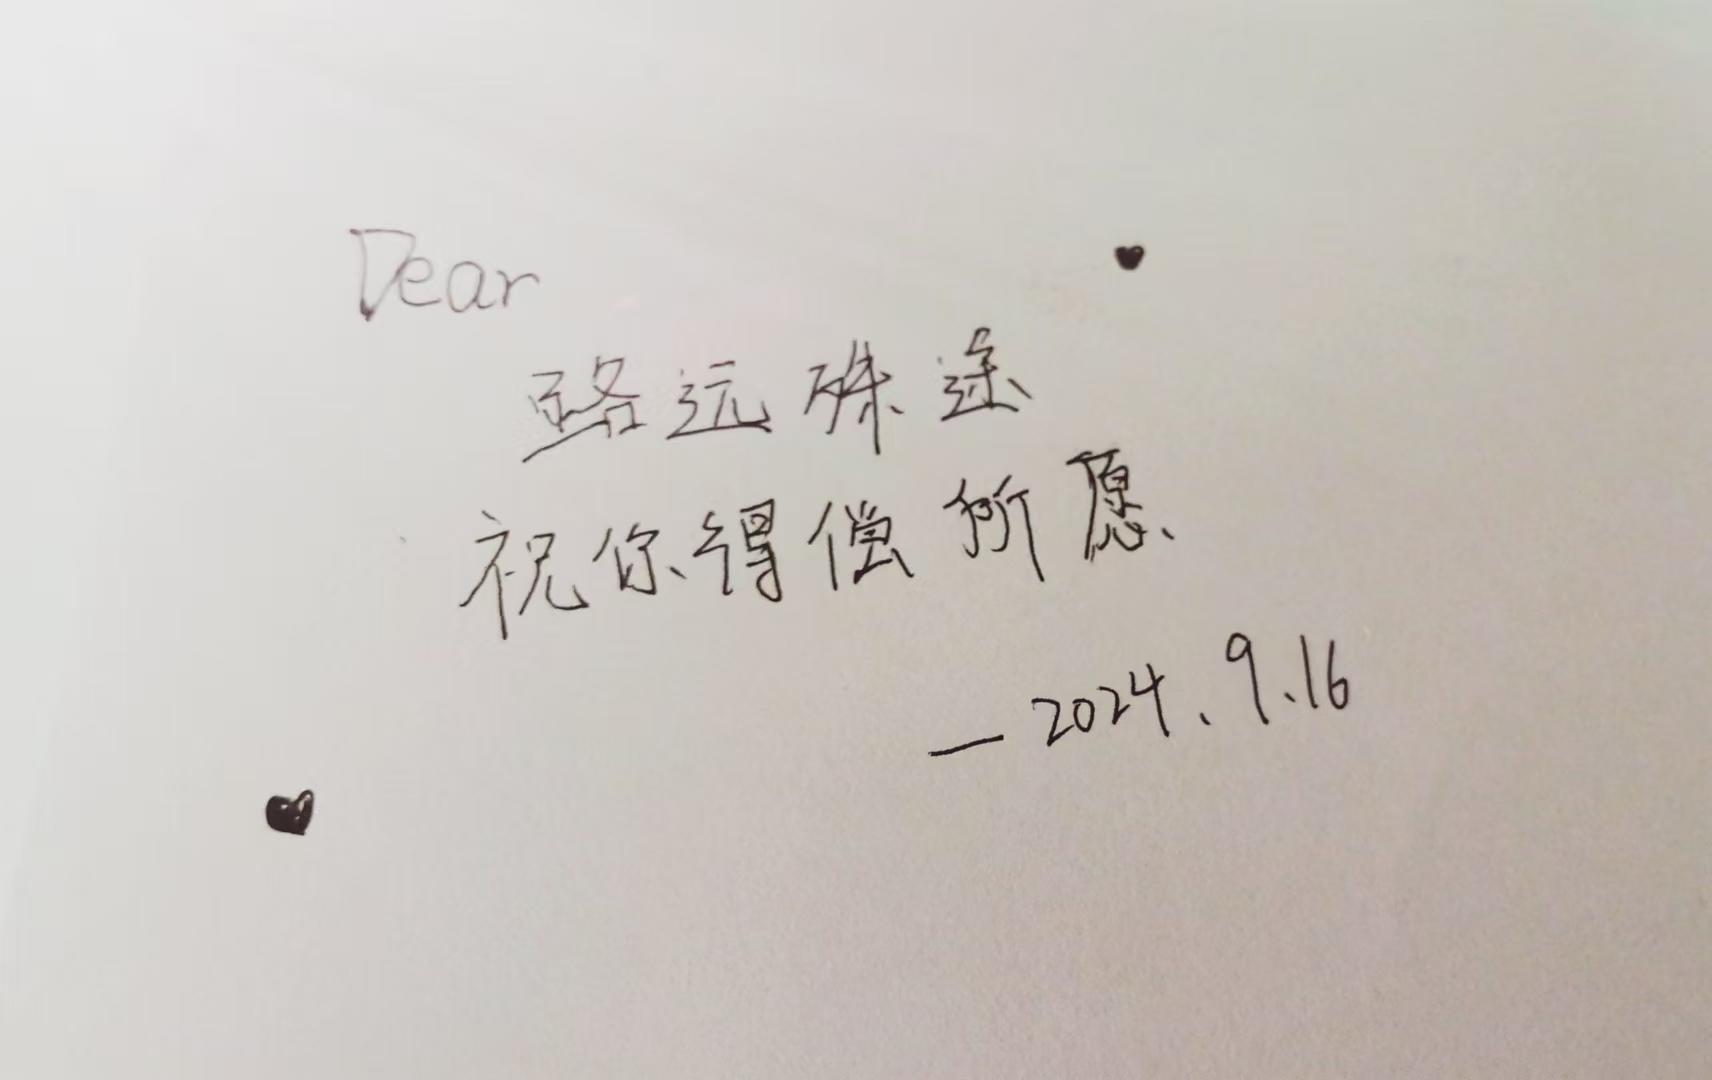 Dear
路远殊途
祝你得偿所愿
—2024.9.16